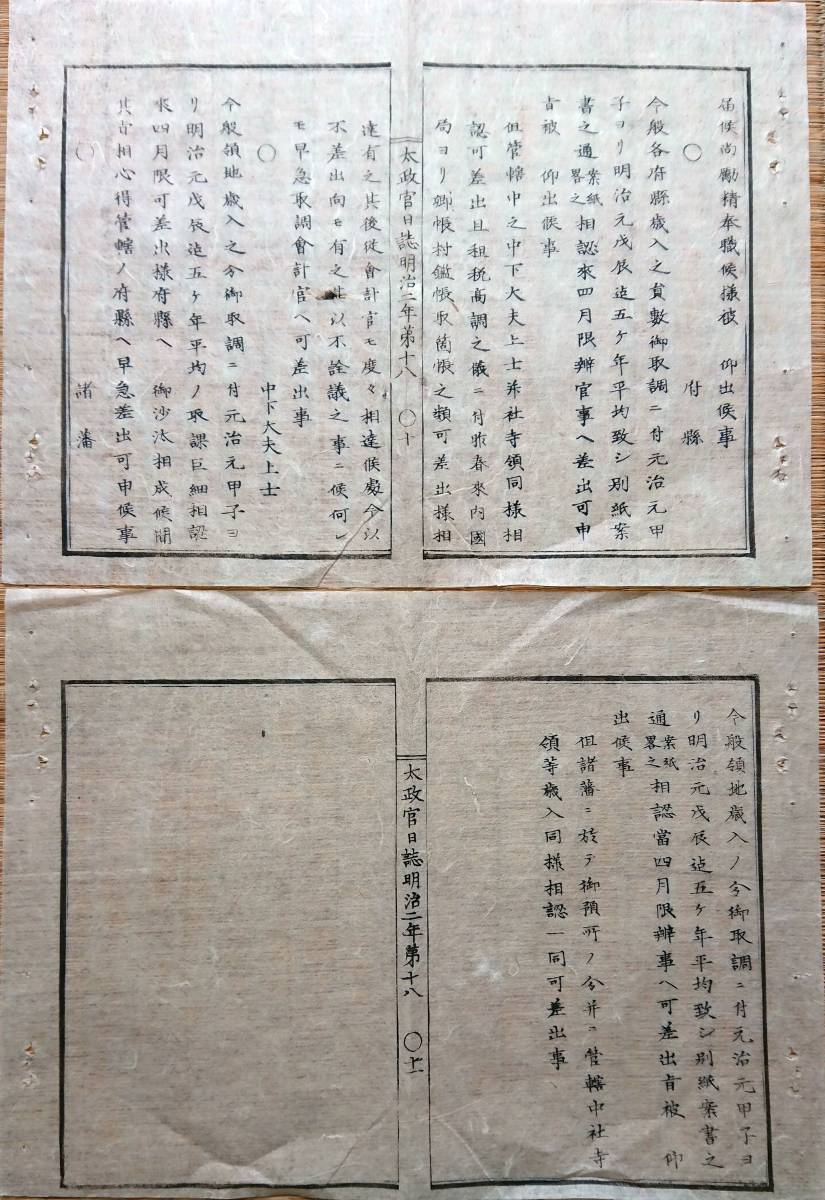 届候尚勵精奉職候樣被　仰出候事
〇　府縣
今般各府縣歳入之員數御取調ニ付元治元甲
子ヨリ明治元戊辰迄五ケ年平均致シ別紙案
書之通案紙畧之相認來四月限辨官事ヘ差出可申
旨被　仰出候事
但管轄中之中下大夫上士并社寺領同樣相
認可差出且租税高調之儀ニ付昨春來内國
局ヨリ郷帳村鑑帳取箇帳之類可差出樣相
太政官日誌明治二年第十八　〇十
達有之其後從會計官モ度々相達候處今以
不差出向モ有之甚以不詮議之事ニ候何レ
モ早急取調會計官ヘ可差出事
〇　中下大夫上士
今般領地歳入之分御取調ニ付元治元甲子ヨ
リ明治元戊辰迄五ケ年平均ノ取課巨細相認
來四月限可差出樣府縣ヘ　御沙汰相成候間
其旨相心得管轄ノ府縣ヘ早急差出可申候事
〇　諸藩
今般領地歳入ノ分御取調ニ付元治元甲子ヨ
リ明治元戊辰迄五ケ年平均致シ別紙案書之
通案紙畧之相認當四月限辨事ヘ可差出旨被　仰
出候事
但諸藩ニ於テ御預所ノ分并ニ管轄中社寺
領等歳入同樣相認一同可差出事
太政官日誌明治二年第十八　〇十一